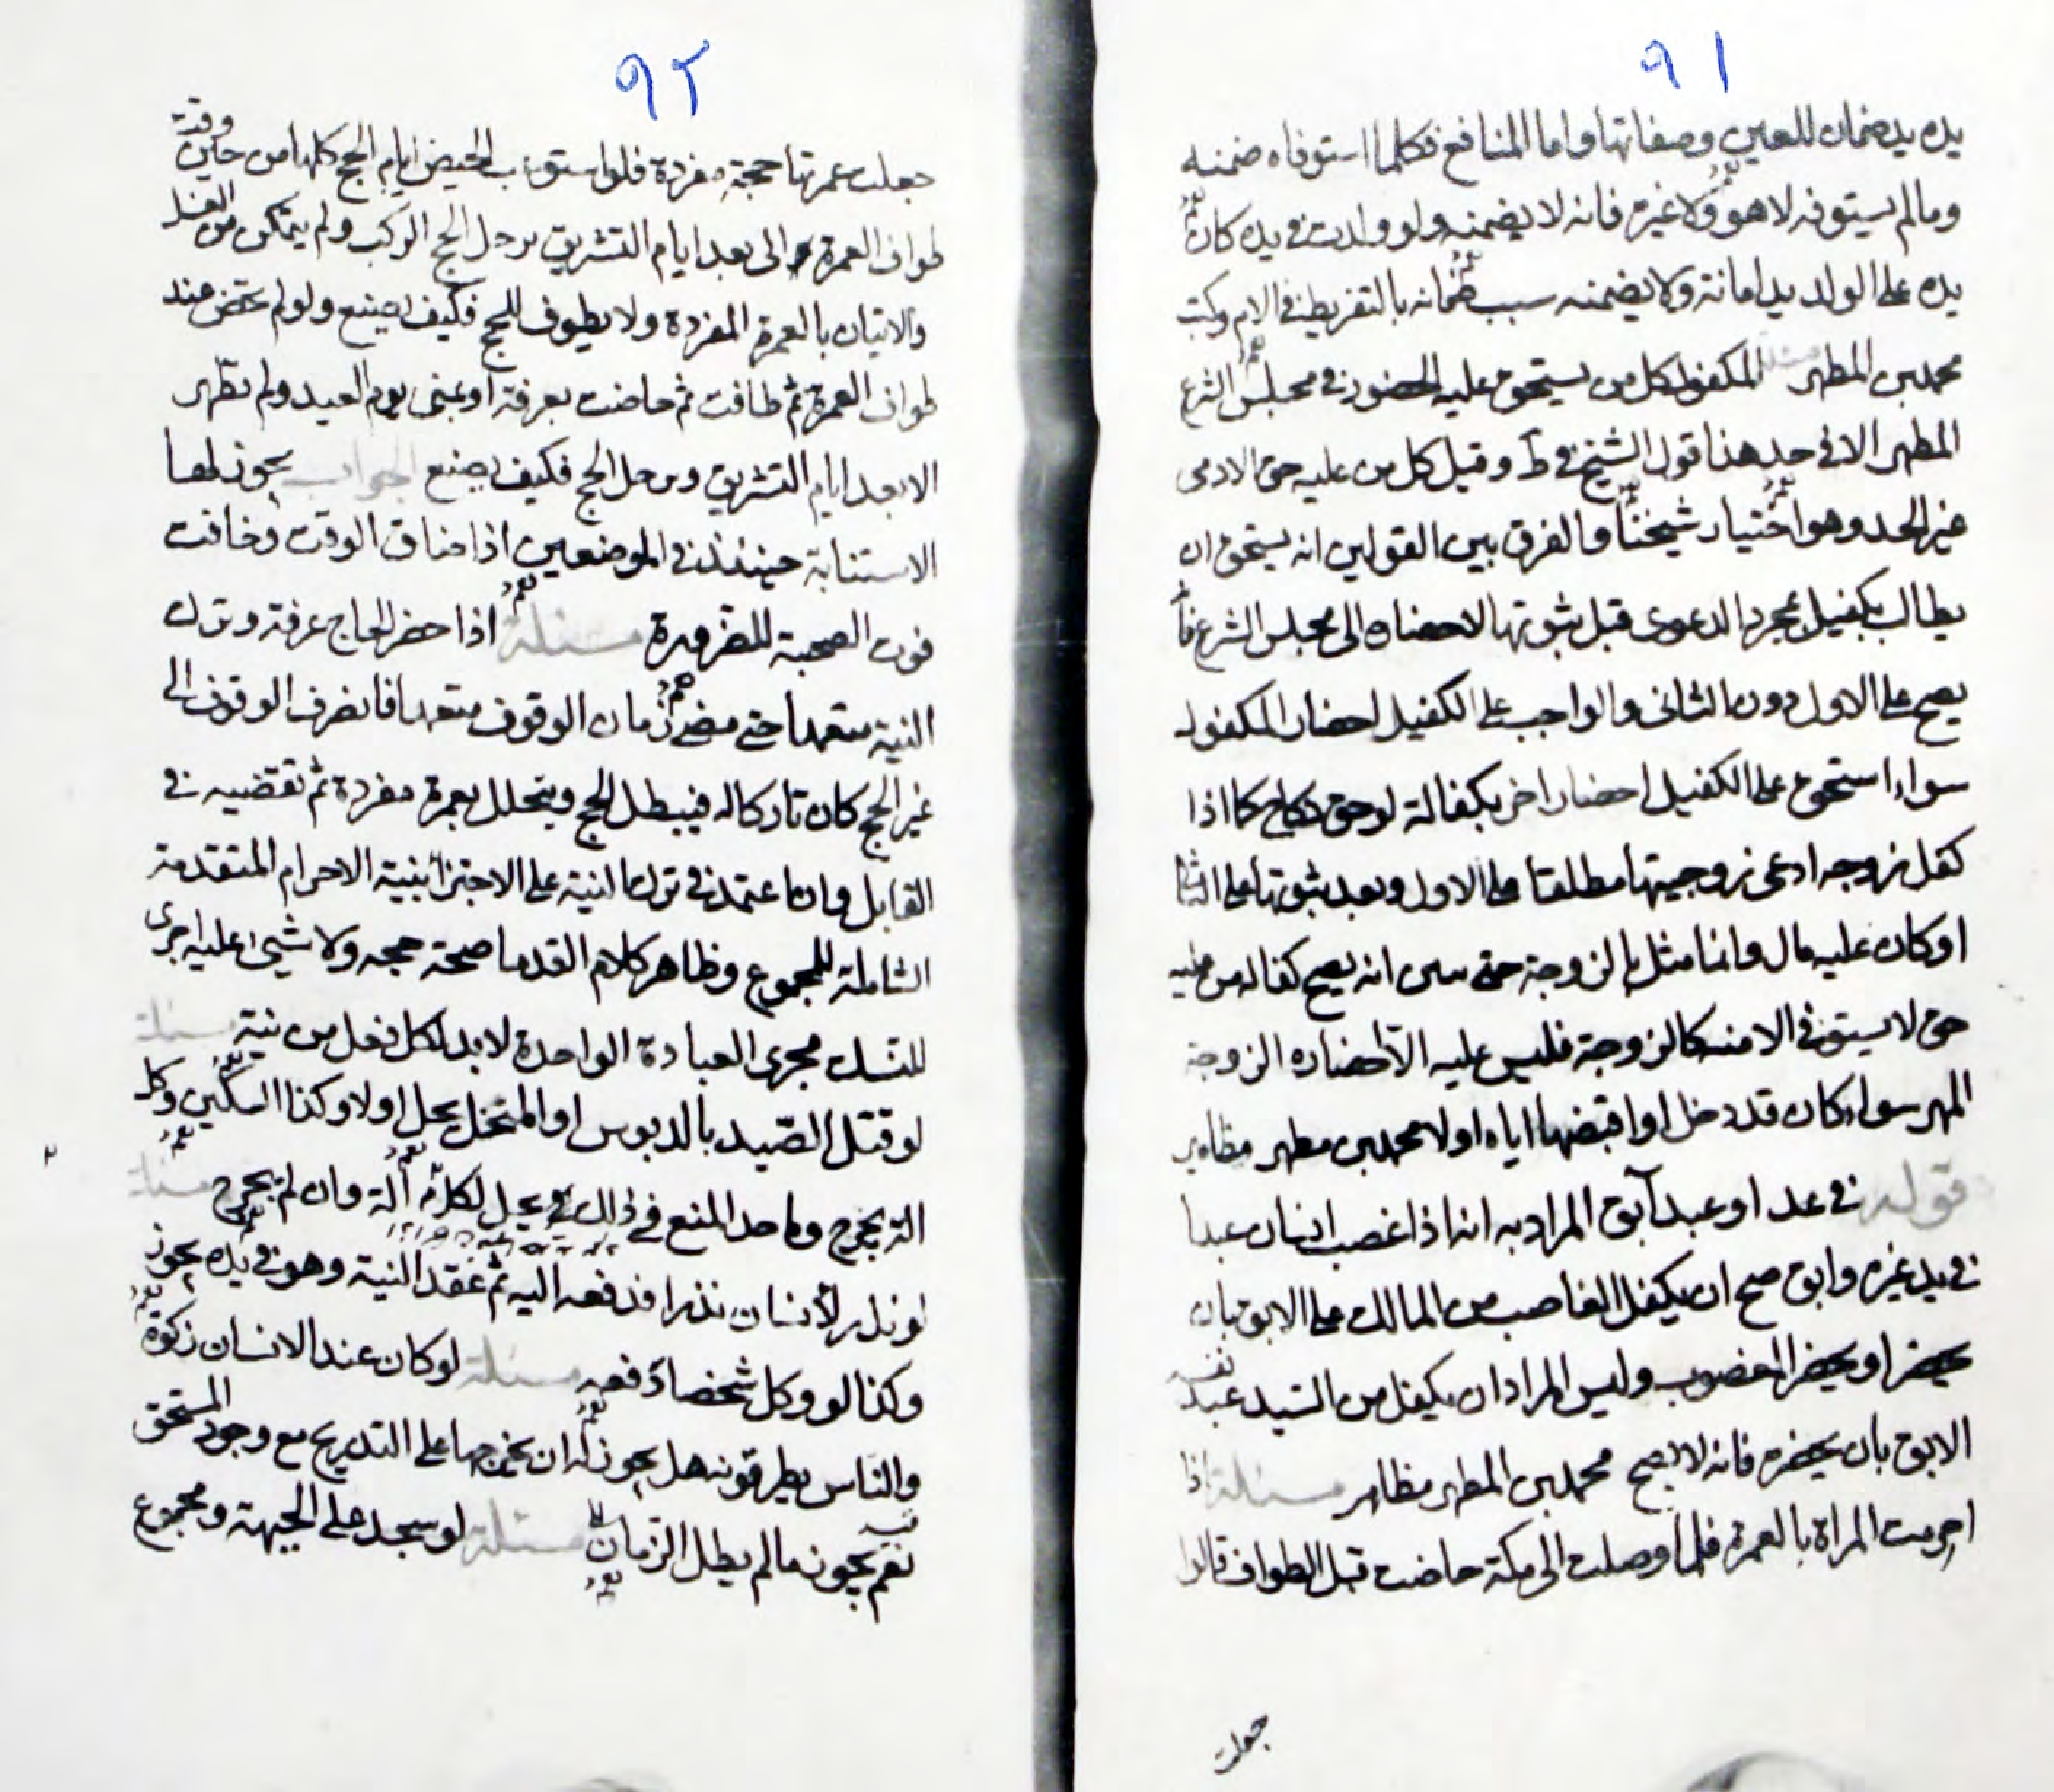 ٩١
يده يد ضمان للعين وصفاتها واما المنافع فكلما استوفاه ضمنه
وما لم يستوفه لا هو ولا غيره فانه لا يضمنه ولو ولدت في يده كان
يده على الولد يد امانة ولا يضمنه سبب ضمانه بالتفريط في الام وكتب
محمد بن المطهر مسئلة المكفول كل من يستحق عليه الحضور في مجلس الشرع
المطهر الا في حد هذا قول الشيخ في ط وقيل كل من عليه حق الادمى
غير الحد وهو اختيار شيخنا والفرق بين القولين انه يستحق ان
يطالب بكفيل بمجرد الدعوى قبل ثبوتها لاحضاه الى مجلس الشرع
يصح على الاول دون الثانى والواجب على الكفيل احضار المكفول
سواء استحق على الكفيل احضار اخر بكفالة لو حق كما اذا
كفل زوجه ادعى زوجيتها مطلقا على الاول وبعد ثبوتها على
او كان عليه مال وانما مثل بالزوجة حتى انه يصح كفاله من عليه
حق لا يستوفى الا منه كالزوجة فليس عليه الا احضاره الزوجة
المهر سواء كان قد دخل او اقبضها اياه اولا محمد بن مطهر
قوله في او عبد آبق المراد به انه اذا غصب انسان عبدا
في يد غيره وابق صح ان يكفل الغاصب من المالك على الابق بان
يحضر او يحضر المغصوب وليس المراد ان يكفل من السيد عبد نفسه
الابق بان يحضره فانه لا يصح محمد بن المطهر مسئلة اذا
احرمت المراة بالعمرة فلما وصلت الى مكة حاضت قبل الطواف قالوا
جعلت
٩٢
جعلت عمرتها حجة مفردة فلو استوعب الحيض ايام الحج كلها من حين وقت
طواف العمرة الى بعد ايام التشريق يرحل الحج الركب ولم يتمكن من الغسل
والاتيان بالعمرة المفردة ولا بطواف للحج فكيف يصنع ولو لم تحض عند
طواف العمرة ثم طافت ثم حاضت بعرفة او بمنى يوم العيد ولم تطهر
الا بعد ايام التشريق ورحل الحج فكيف يصنع الجواب يجوز لها
الاستنابة حينئذ في الموضعين اذا ضاق الوقت وخافت
فوت الصحبة للضرورة مسئلة اذا حضر الحاج عرفة وترك
النية متعمدا حتى مضى زمان الوقوف متعمدا فانصرف الوقوف الى
غير الحج كان تاركا له فيبطل الحج ويتحلل بعمرة مفردة ثم تقضيه في
القابل وان اعتمد في ترك النية على الاجتزا بنية الاحرام المتقدمة
الشاملة للمجموع وظاهر كلام القدما صحة حجه ولا شيئ عليه اجرى
للنسك مجرى العبادة الواحدة لا بد لكل فعل من نية مسئلة
لو قتل الصيد بالدبوس او المنخل يحل اولا وكذا السكين وكل
الة يجرح وما حد المنع في ذلك يحل لكل الة وان لم يجرح مسئلة
لو نذر لانسان نذرا فدفعه اليه ثم عقد النية وهو في يده يجوز
وكذا لو وكل شخصا دفعه مسئلة لو كان عند الانسان زكوة
والناس يطرقونه هل يجوز له ان يخرجها على التدريج مع وجود المستحق
نعم يجوز ما لم يطل الزمان مسئلة لو سجد على الجبهة ومجموع